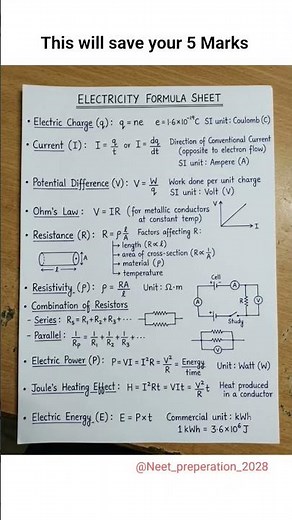 This will save your 5 Marks
ELECTRICITY FORMULA SHEET
• Electric Charge (q): q = ne e = 1.6×10⁻¹⁹C SI unit: Coulomb (C)
• Current (I): I = q/t or I = dq/dt Direction of Conventional Current
(opposite to electron flow)
SI unit: Ampere (A)
• Potential Difference (V): V = W/q Work done per unit charge
SI unit: Volt (V)
• Ohm's Law: V = IR (for metallic conductors
at constant temp)
V
I
• Resistance (R): R = ρ l/A Factors affecting R:
length (R ∝ l)
area of cross-section (R ∝ 1/A)
material (ρ)
temperature
A
l
• Resistivity (ρ): ρ = RA/l Unit: Ω·m
Cell
A
A
R
V
Study
V
• Combination of Resistors
- Series: Rs = R₁ + R₂ + R₃ + ···
- Parallel: 1/Rp = 1/R₁ + 1/R₂ + 1/R₃ ···
• Electric Power (P): P = VI = I²R = V²/R = Energy/time Unit: Watt (W)
• Joule's Heating Effect: H = I²Rt = VIt = V²/R t Heat produced
in a conductor
• Electric Energy (E): E = P×t Commercial unit: kWh
1 kWh = 3.6×10⁶ J
@Neet_preperation_2028